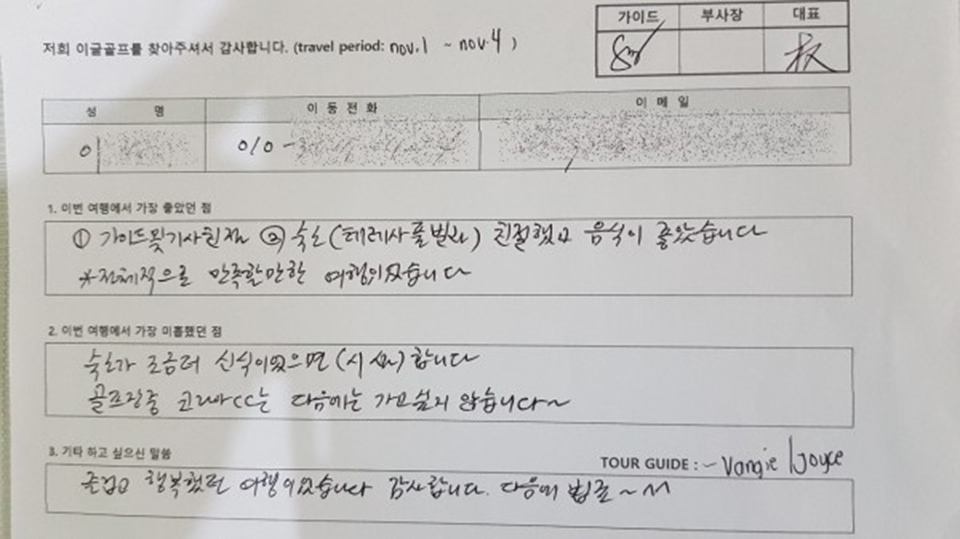 가이드 부사장 대표
저희 이글골프를 찾아주셔서 감사합니다. (travel period: nov.1 ~ nov.4 )
성 명 이 동 전 화 이 메 일
이 010 -
1. 이번 여행에서 가장 좋았던 점
① 가이드및기사친절 ② 숙소(테레사풀빌라) 친절했고 음식이 좋았습니다
*전체적으로 만족할만한 여행이었습니다
2. 이번 여행에서 가장 미흡했던 점
숙소가 조금더 신식이었으면 (시설) 합니다
골프장중 코리아CC는 다음에는 가고싶지 않습니다~
3. 기타 하고 싶으신 말씀
TOUR GUIDE : ~ Vangie Joyce
즐겁고 행복했던 여행이었습니다 감사합니다. 다음에 뵙죠~